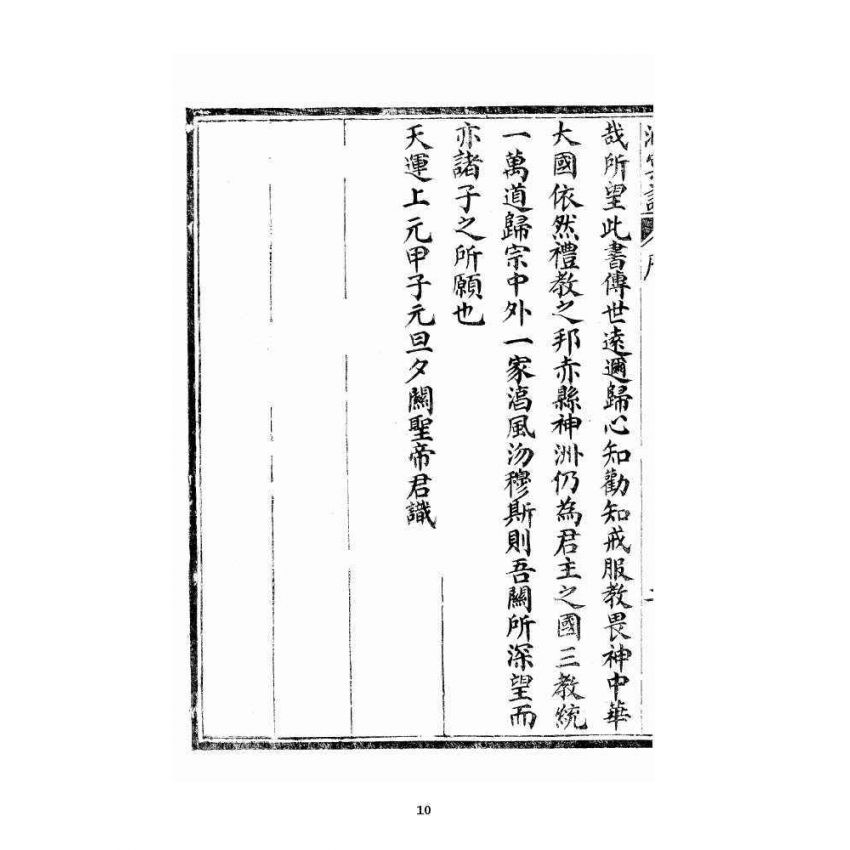 哉所望此書傳世遠邇歸心知勸知戒服教畏神中華
大國依然禮教之邦赤縣神洲仍為君主之國三教統
一萬道歸宗中外一家淳風沕穆斯則吾關所深望而
亦諸子之所願也
天運上元甲子元旦夕關聖帝君識
10